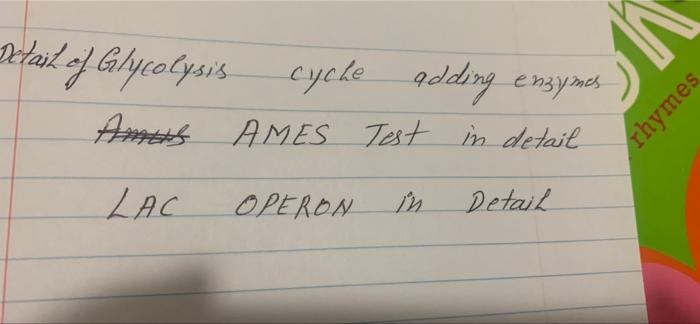 Detail of Glycolysis cycle adding enzymes
Amus AMES Test in detail
LAC OPERON in Detail
rhymes